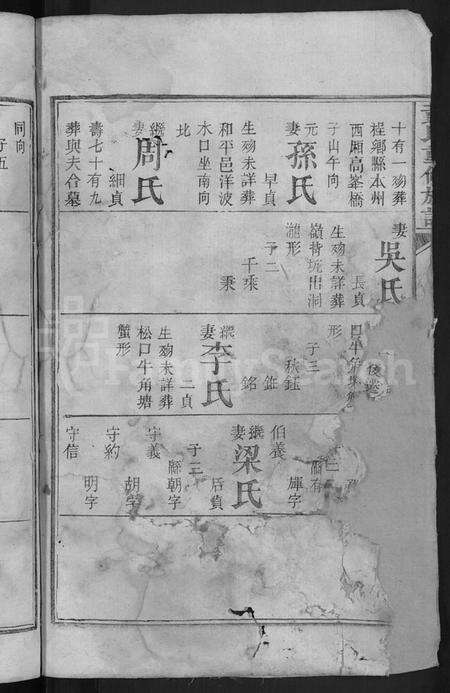 十有一歿葬
程鄉縣本州
西厢高峯橋
子山午向
元
妻孫氏
早貞
生歿未詳葬
和平邑洋波
水口坐南向
北
繼妻周氏
細貞
壽七十有九
葬與夫合墓
妻吳氏
長貞
生歿未詳葬
嶺背坑出洞
瀧形
子二
千乘
秉
形
子三
秋鈺
銘
繼妻李氏
二貞
生歿未詳葬
松口牛角塘
蟹形
二
輝字
伯養
繼妻梁氏
后貞
子三
縣朝字
守義
胡字
守約
明字
守信
同向
子五
FamilySearch